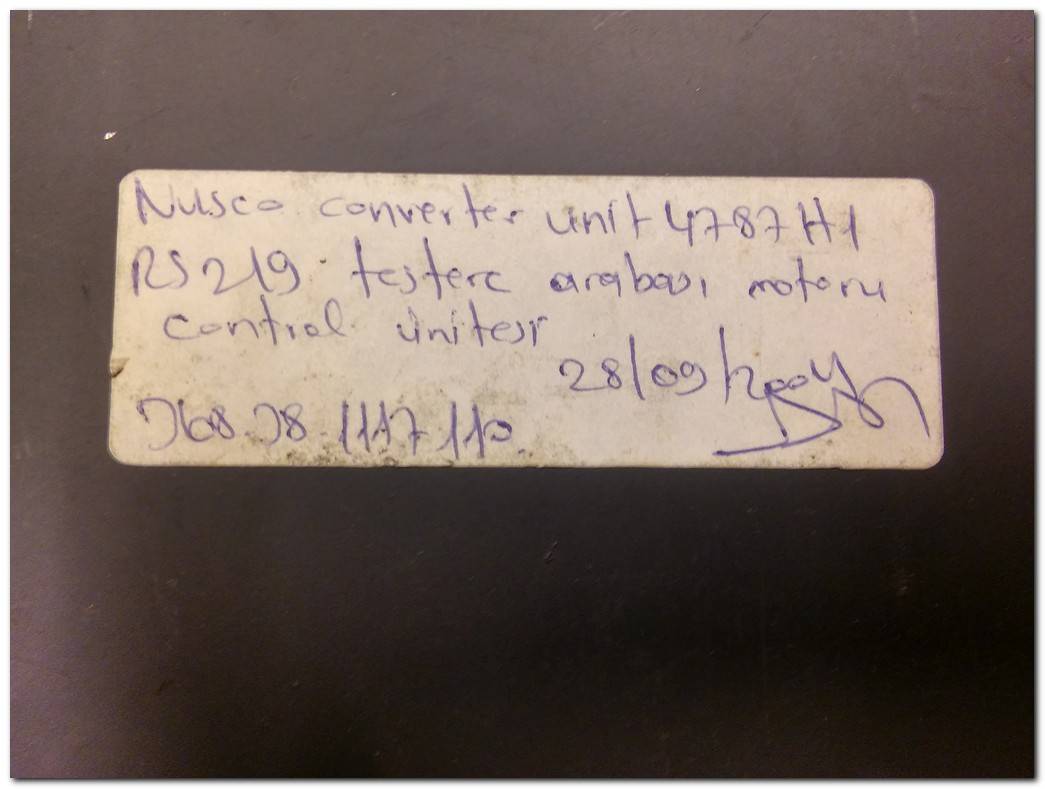 Nusco converter unit 4787H1
RS219 testere arabası motoru
control ünitesi
28/09/2004
J68.J8.1117.110